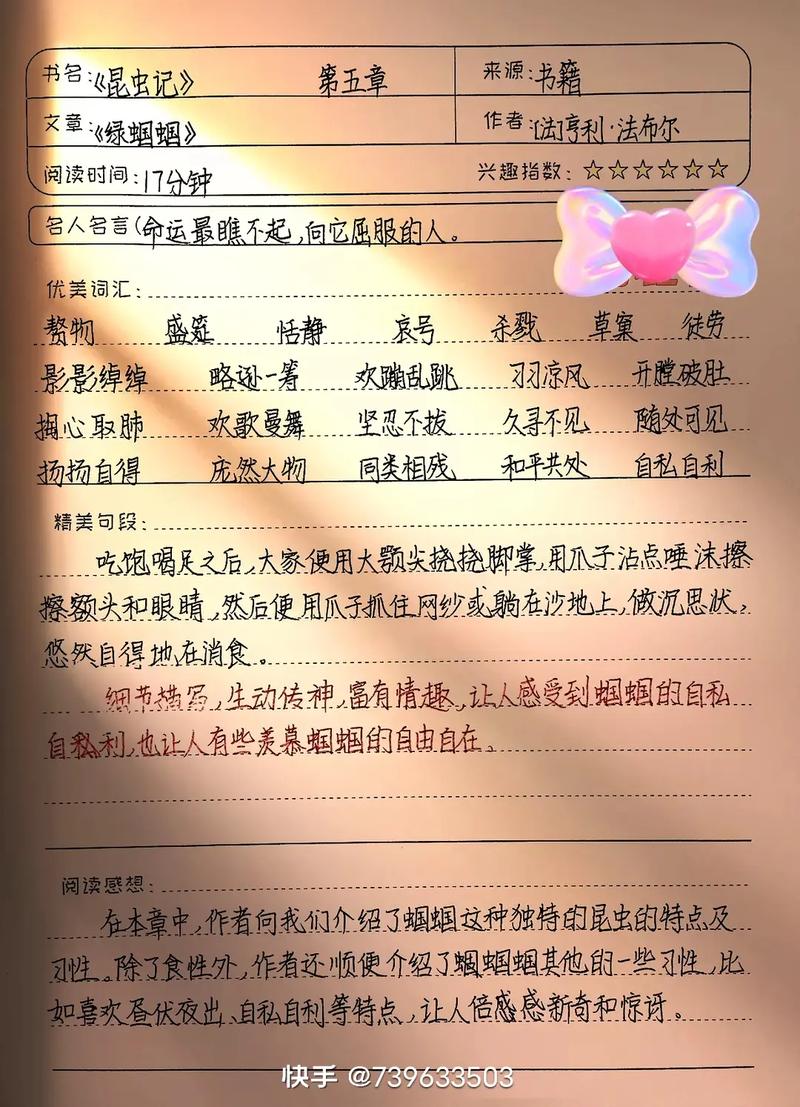 书名:《昆虫记》 第五章 来源:书籍
文章:《绿蝈蝈》 作者:[法]亨利·法布尔
阅读时间:17分钟 兴趣指数:☆☆☆☆☆☆
名人名言(命运最瞧不起,向它屈服的人。
优美词汇:
螯物 盛筵 恬静 哀号 杀戮 草窠 徒劳
影影绰绰 略逊一筹 欢蹦乱跳 习习凉风 开膛破肚
掏心取肺 欢歌曼舞 坚忍不拔 久寻不见 随处可见
扬扬自得 庞然大物 同类相残 和平共处 自私自利
精美句段:
吃饱喝足之后,大家便用大颚尖挠挠脚掌,用爪子沾点唾沫擦
擦额头和眼睛,然后便用爪子抓住网纱或躺在沙地上,做沉思状,
悠然自得地在消食。
细节描写,生动传神,富有情趣,让人感受到蝈蝈的自私
自私利,也让人有些羡慕蝈蝈的自由自在。
阅读感想:
在本章中,作者向我们介绍了蝈蝈这种独特的昆虫的特点及
习性。除了食性外,作者还顺便介绍了蝈蝈蝈其他的一些习性,比
如喜欢昼伏夜出、自私自利等特点,让人倍感感新奇和惊讶。
快手 @739633503